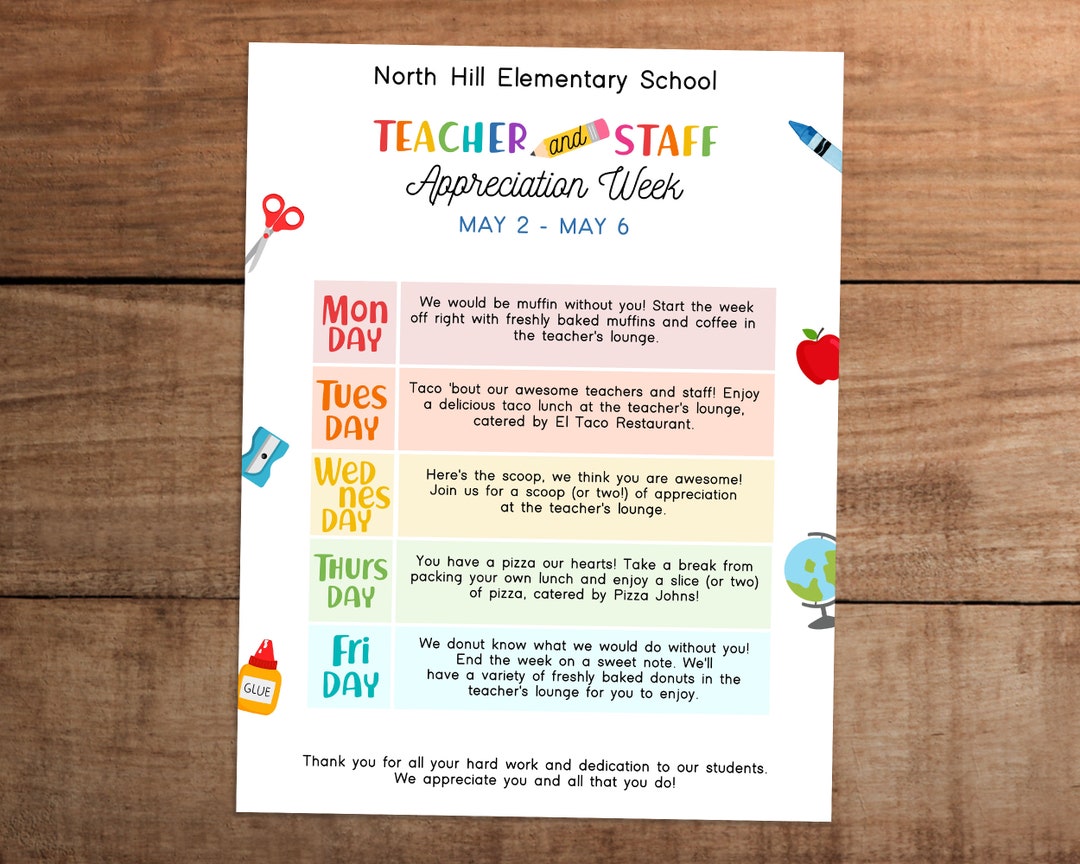 North Hill Elementary School
TEACHER and STAFF
Appreciation Week
MAY 2 - MAY 6
Mon
DAY
We would be muffin without you! Start the week
off right with freshly baked muffins and coffee in
the teacher's lounge.
Tues
DAY
Taco 'bout our awesome teachers and staff! Enjoy
a delicious taco lunch at the teacher's lounge,
catered by El Taco Restaurant.
Wed
nes
DAY
Here's the scoop, we think you are awesome!
Join us for a scoop (or two!) of appreciation
at the teacher's lounge.
Thurs
DAY
You have a pizza our hearts! Take a break from
packing your own lunch and enjoy a slice (or two)
of pizza, catered by Pizza Johns!
Fri
DAY
We donut know what we would do without you!
End the week on a sweet note. We'll
have a variety of freshly baked donuts in the
teacher's lounge for you to enjoy.
GLUE
Thank you for all your hard work and dedication to our students.
We appreciate you and all that you do!